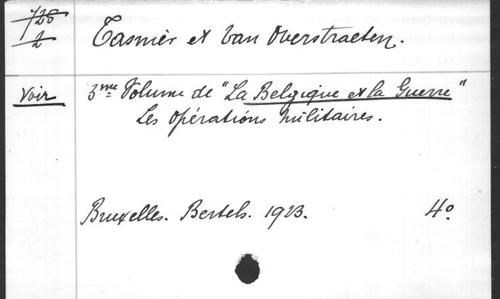 728
2
Tasnier et Van Overstraeten.
Voir
3me Volume de "La Belgique et la Guerre"
Les opérations militaires.
Bruxelles. Bertels. 1923. 4o